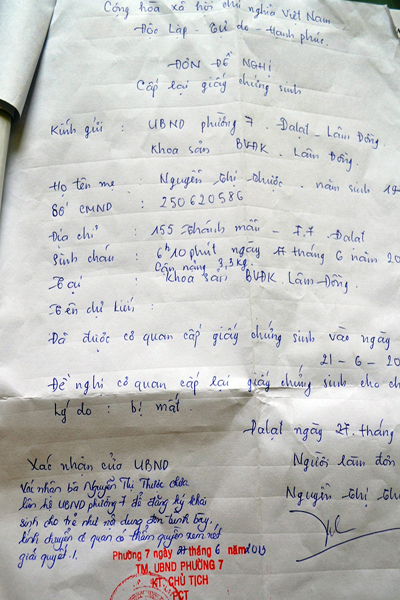 Cộng hòa xã hội chủ nghĩa Việt Nam
Độc Lập - Tự do - Hạnh phúc.
ĐƠN ĐỀ NGHỊ
Cấp lại giấy chứng sinh
Kính gửi : UBND phường 7 . Dalat - Lâm Đồng
Khoa sản BVĐK . Lâm Đồng.
Họ tên mẹ : Nguyễn Thị Thược . năm sinh 19
Số CMND : 250620586
Địa chỉ : 155 Thánh mẫu - F.7 . Dalat
Sinh cháu : 6h10 phút ngày 17 tháng 6 năm 20
Cân nặng 3,3kg.
Tại : Khoa sản BVĐK . Lâm Đồng.
Tên dự kiến :
Đã được cơ quan cấp giấy chứng sinh vào ngày
21 - 6 - 20
Đề nghị cơ quan cấp lại giấy chứng sinh cho ch
Lý do : bị mất.
Dalat ngày 27. tháng
Xác nhận của UBND
Người làm đơn
Xác nhận bà Nguyễn Thị Thược chưa
liên hệ UBND phường 7 để đăng ký khai
sinh cho trẻ như nội dung đơn trình bày.
Kính chuyển cơ quan có thẩm quyền xem xét
giải quyết ./.
Nguyễn Thị Thư
Phường 7 ngày 27 tháng 6 năm 2013
TM. UBND PHƯỜNG 7
KT. CHỦ TỊCH
PCT